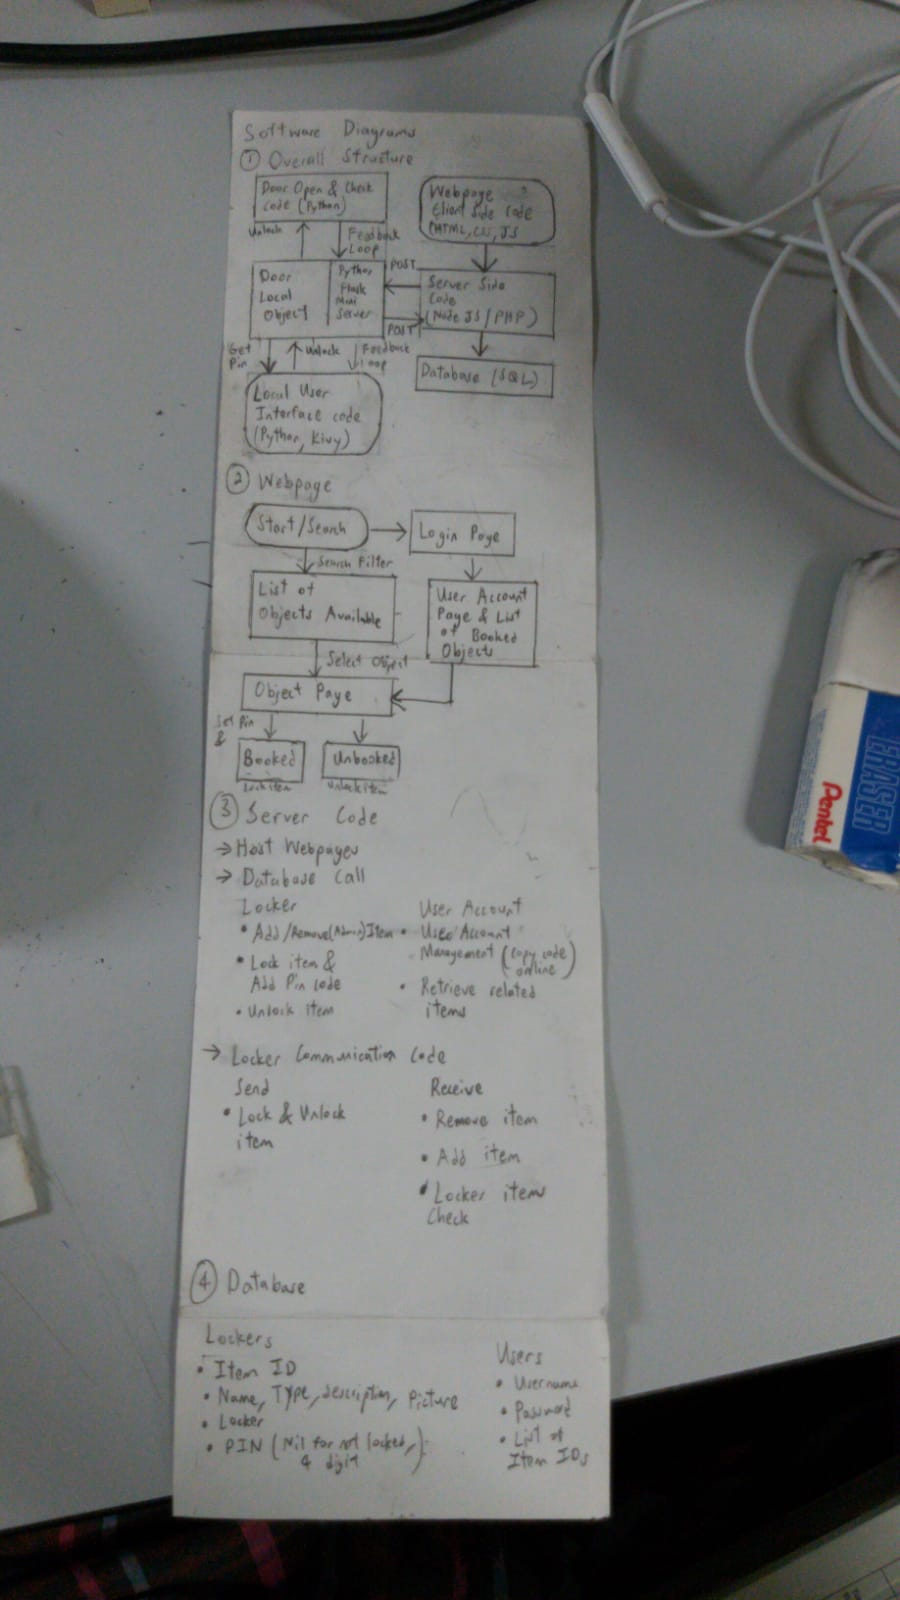 Software Diagrams
① Overall Structure
Door Open & Check
Code (Python)
Webpage
Client Side Code
(HTML, CSS, JS
Unlock
Feedback
Loop
Door
Local
Object
Python
Flask
Mini
Server
POST
POST
Server Side
Code
(Node JS / PHP)
Get
Pin
Unlock
Feedback
Loop
Database (SQL)
Local User
Interface code
(Python, Kivy)
② Webpage
Start/Search
Login Page
Search Filter
List of
Objects Available
User Account
Page & List
of Booked
Objects
Select Object
Object Page
Set Pin
&
Booked
Lock item
Unbooked
Unlock item
③ Server Code
→ Host Webpages
→ Database Call
Locker
• Add/Remove(Admin)Item
• Lock item &
Add Pin code
• Unlock item
User Account
• User Account
Management (Copy code
online)
• Retrieve related
items
→ Locker Communication Code
Send
• Lock & Unlock
item
Receive
• Remove item
• Add item
• Locker items
Check
④ Database
Lockers
• Item ID
• Name, Type, description, Picture
• Locker
• PIN (Nil for not locked,
4 digit)
Users
• Username
• Password
• List of
Item IDs
Pentel
ERASER